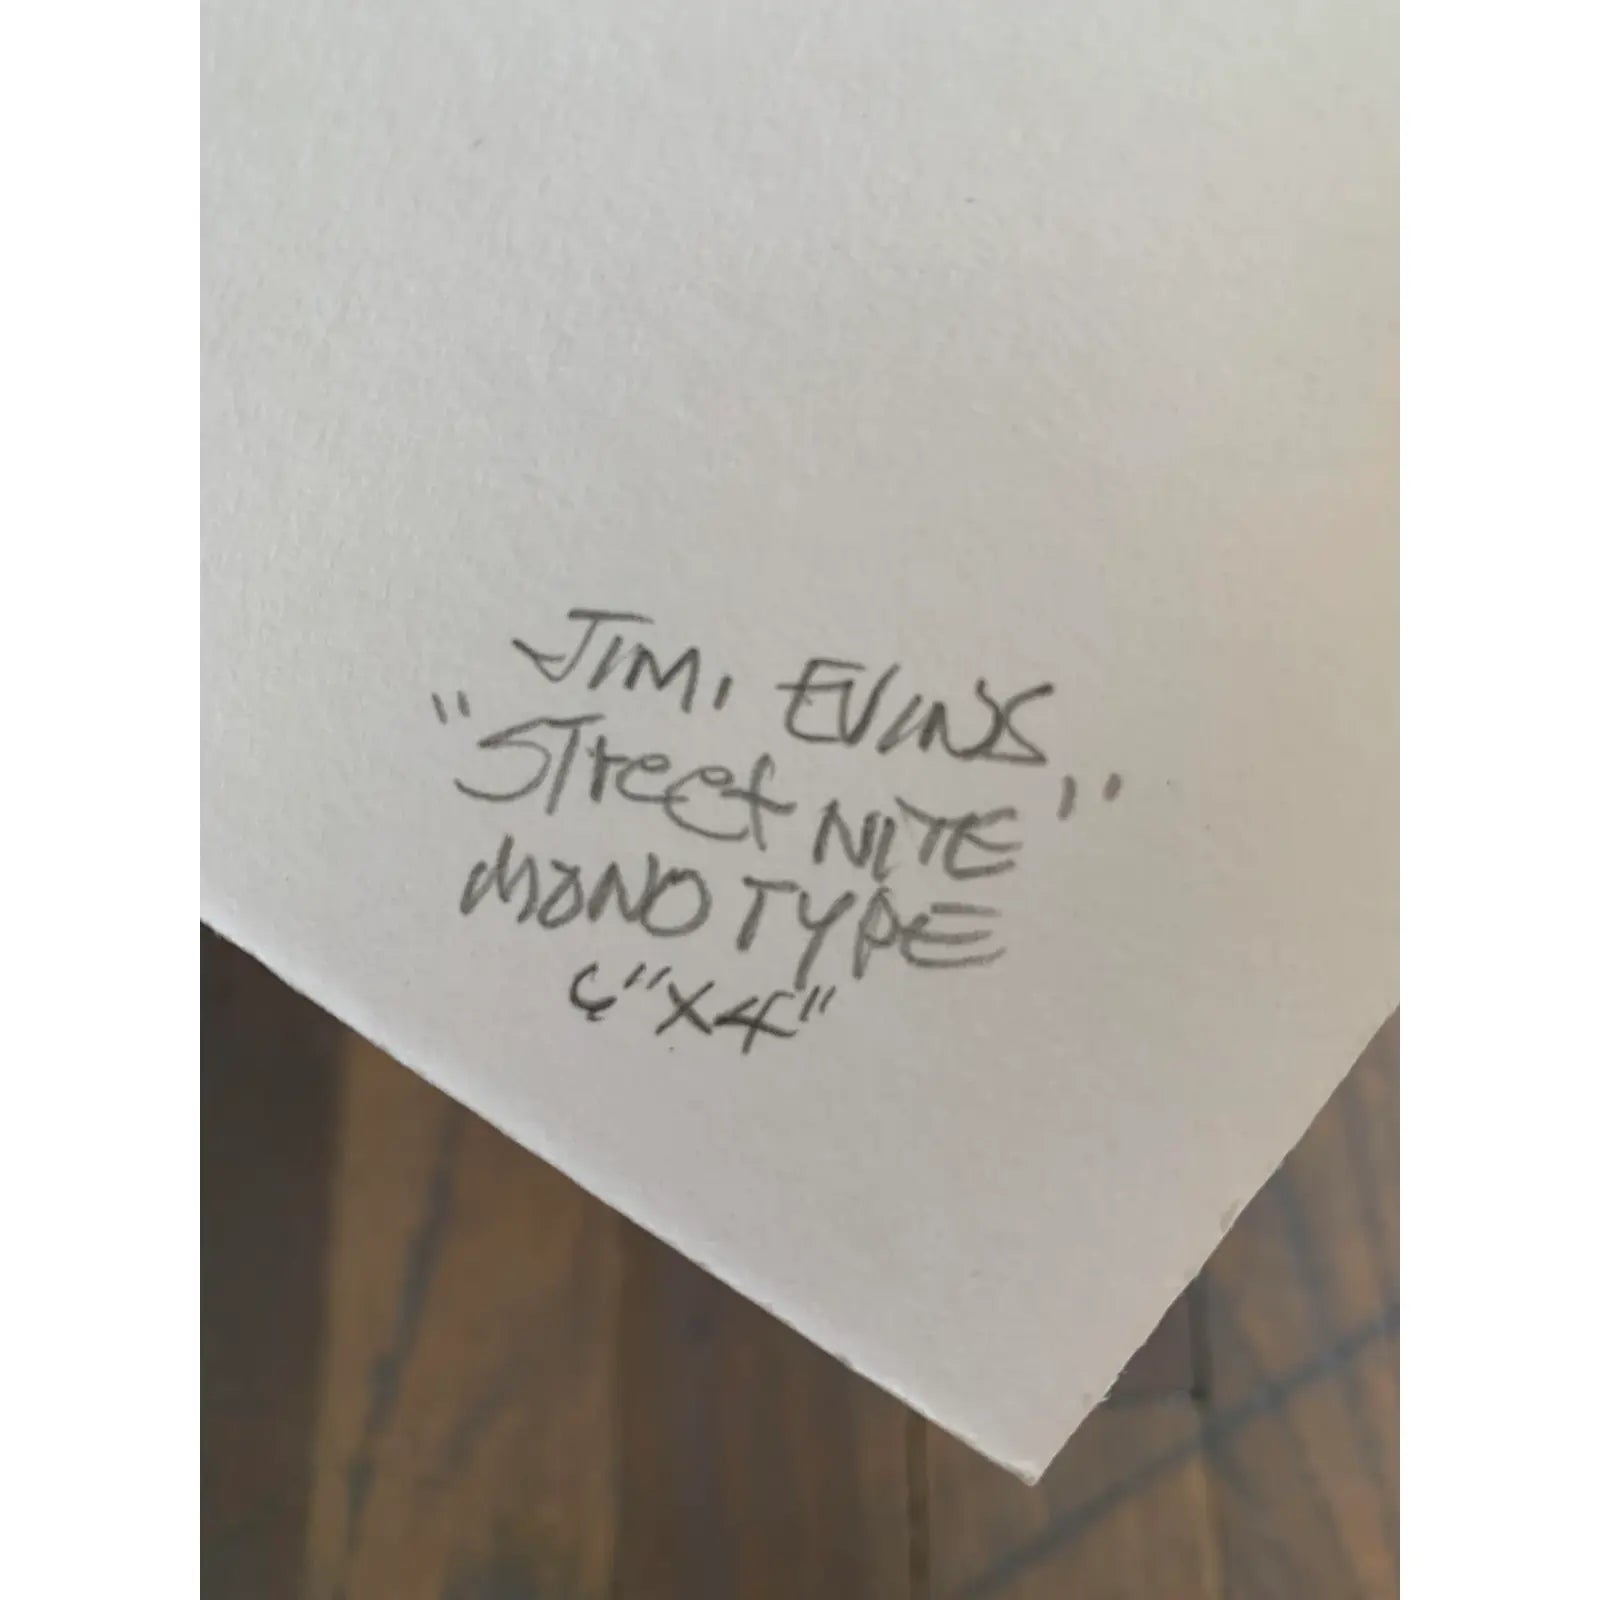 JIMI EVINS
"Street NITE"
MONO TYPE
6"X4"